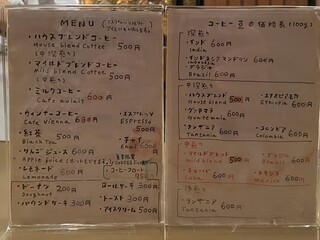 MENU
・ハウスブレンドコーヒー
House blend Coffee 500円
(中煎り)
・マイルドブレンドコーヒー
Mild blend Coffee 500円
(中煎り)
・ミルクコーヒー
Cafe aulait 600円
・ウィンナーコーヒー
Cafe Vienna 600円
・エスプレッソ
ESPresso
500円
・紅茶 500円
Black Tea
・チャイ
Chai 600円
・りんごジュース 600円
Apple juice
・レモネード 600円
Lemonade
・コーヒーフロート
・ドーナツ 200円
Doughnut
・パウンドケーキ 300円
ロールケーキ 300円
・トースト 300円
・アイスクリーム 500円
コーヒー豆の価格表(100g)
深煎り
・インド 600円
India
・インドネシアマンデリン 600円
Indonesia
・ブラジル
Brazil 600円
中深煎り
・ハウスブレンド
House blend 500円
・エチオピア 600円
Ethiopia
・グァテマラ
Guatemala 600円
・タンザニア
Tanzania 600円
・コロンビア
Colombia 600円
中煎り
・マイルドブレンド
mild blend 500円
・ブラジル
Brazil 600円
・キューバ
Cuba 600円
・メキシコ
Mexico 600円
浅煎り
・タンザニア
Tanzania 600円